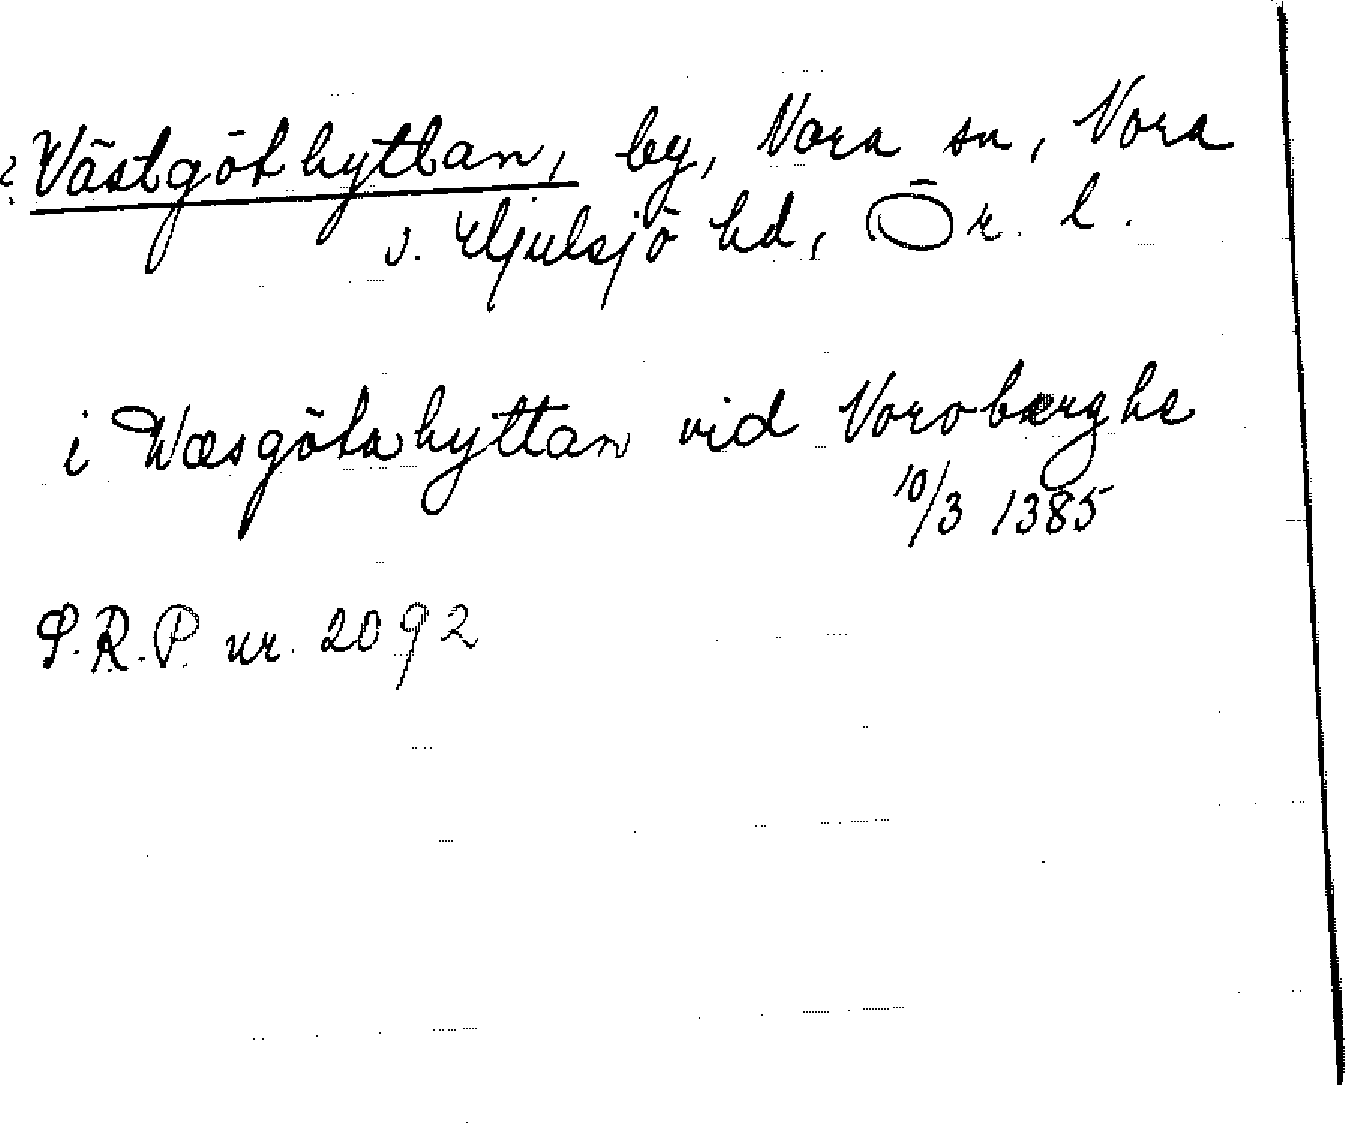 ? Västgöthyttan, by, Nora sn, Nora
o. Hjulsjö hd, Ör. l.
i Wæsgötahyttan vid Noroberghe
10/3 1385
P.R.P. nr. 2092